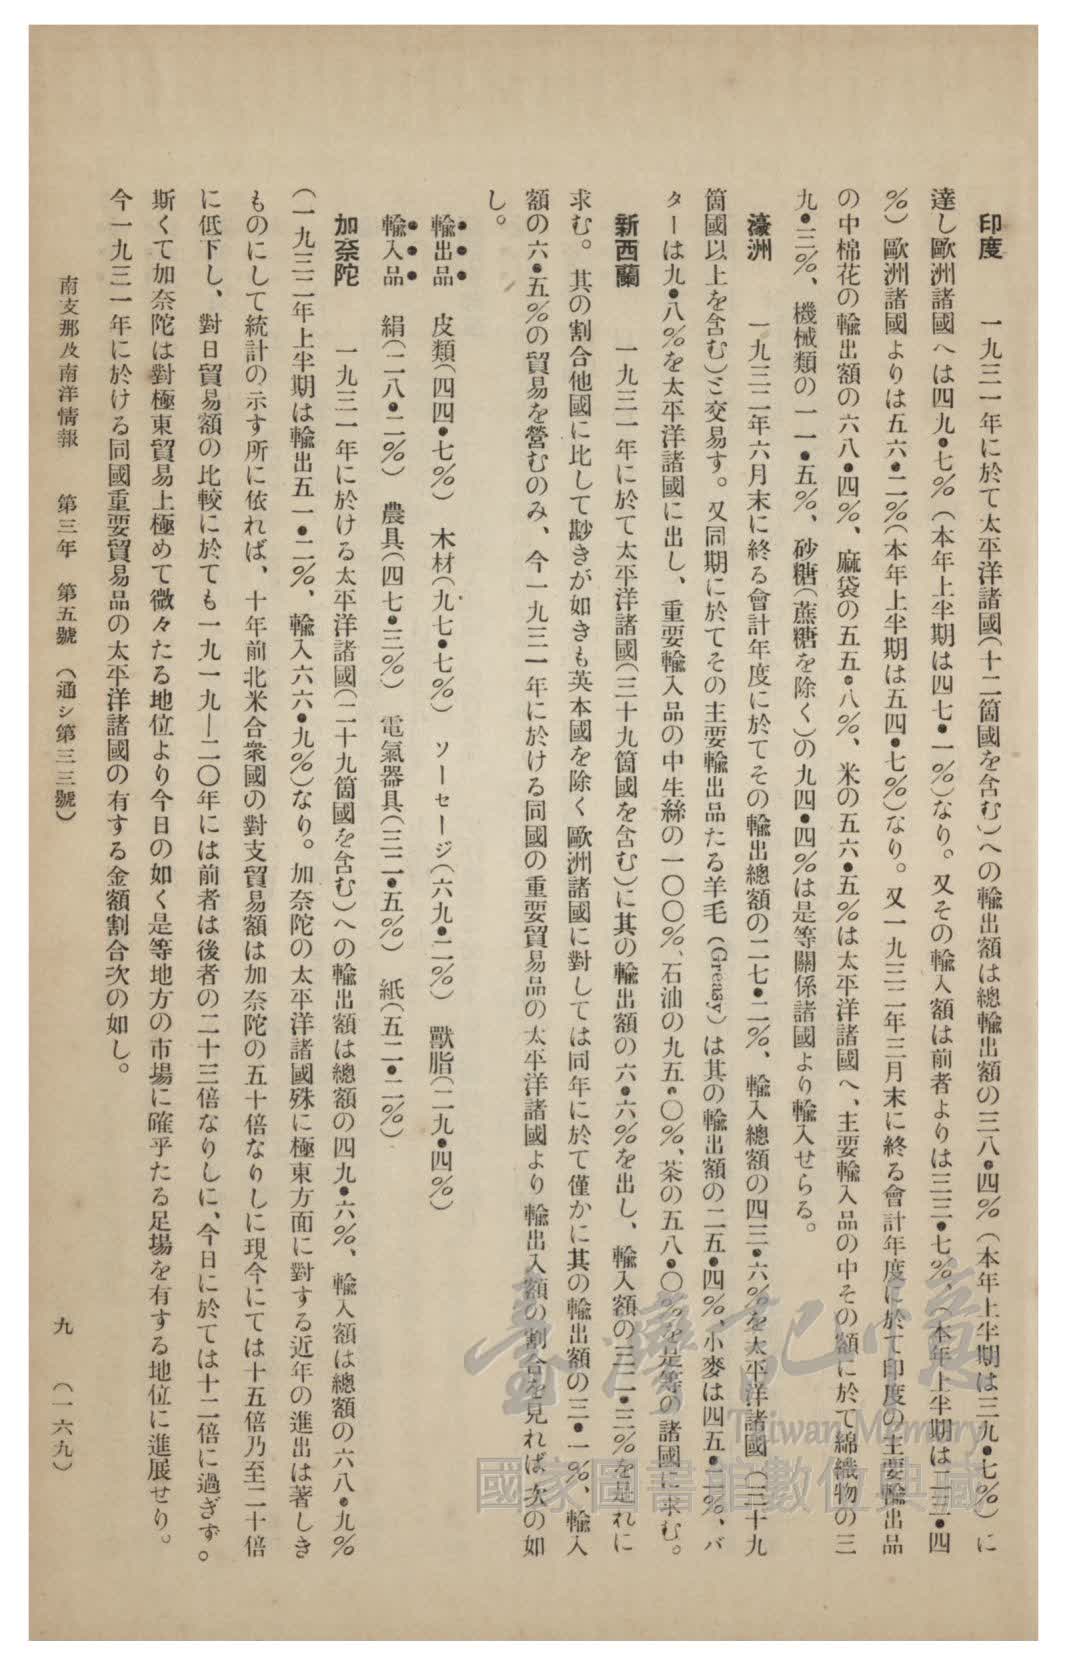 印度　一九三一年に於て太平洋諸國(十二箇國を含む)への輸出額は總輸出額の三八•四%(本年上半期は三九•七%)に
達し歐洲諸國へは四九•七%(本年上半期は四七•一%)なり。又その輸入額は前者よりは三三•七%、(本年上半期は三三•四
%)歐洲諸國よりは五六•二%(本年上半期は五四•七%)なり。又一九三二年三月末に終る會計年度に於て印度の主要輸出品
の中棉花の輸出額の六八•四%、麻袋の五五•八%、米の五六•五%は太平洋諸國へ、主要輸入品の中その額に於て綿織物の三
九•三%、機械類の一一•五%、砂糖(蔗糖を除く)の九四•四%は是等關係諸國より輸入せらる。
濠洲　一九三二年六月末に終る會計年度に於てその輸出總額の二七•二%、輸入總額の四三•六%を太平洋諸國(三十九
箇國以上を含む)と交易す。又同期に於てその主要輸出品たる羊毛(Greasy)は其の輸出額の二五•四%、小麥は四五•二%、バ
ターは九•八%を太平洋諸國に出し、重要輸入品の中生絲の一〇〇%、石油の九五•〇%、茶の五八•〇%を是等の諸國に求む。
新西蘭　一九三一年に於て太平洋諸國(三十九箇國を含む)に其の輸出額の六•六%を出し、輸入額の三二•三%を是れに
求む。其の割合他國に比して尠きが如きも英本國を除く歐洲諸國に對しては同年に於て僅かに其の輸出額の三•一%、輸入
額の六•五%の貿易を營むのみ、今一九三一年に於ける同國の重要貿易品の太平洋諸國より輸出入額の割合を見れば次の如
し。
輸出品　皮類(四四•七%)　木材(九七•七%)　ソーセージ(六九•二%)　獸脂(二九•四%)
輸入品　絹(二八•二%)　農具(四七•三%)　電氣器具(三二•五%)　紙(五二•二%)
加奈陀　一九三一年に於ける太平洋諸國(二十九箇國を含む)への輸出額は總額の四九•六%、輸入額は總額の六八•九%
(一九三二年上半期は輸出五一•二%、輸入六六•九%)なり。加奈陀の太平洋諸國殊に極東方面に對する近年の進出は著しき
ものにして統計の示す所に依れば、十年前北米合衆國の對支貿易額は加奈陀の五十倍なりしに現今にては十五倍乃至二十倍
に低下し、對日貿易額の比較に於ても一九一九—二〇年には前者は後者の二十三倍なりしに、今日に於ては十二倍に過ぎず。
斯くて加奈陀は對極東貿易上極めて微々たる地位より今日の如く是等地方の市場に確乎たる足場を有する地位に進展せり。
今一九三一年に於ける同國重要貿易品の太平洋諸國の有する金額割合次の如し。
南支那及南洋情報　第三年　第五號　(通シ第三三號)　九　(一六九)
臺灣記憶
Taiwan Memory
國家圖書館數位典藏